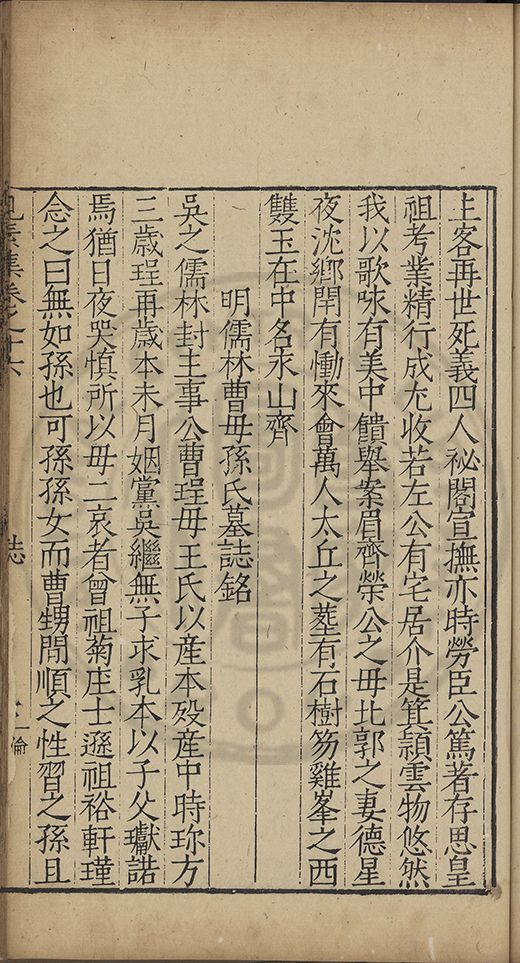 主客再世死義四人祕閣宣撫亦時勞臣公篤著存思皇
祖考業精行成尤收若左公有宅居介是箕潁雲物悠然
我以歌咏有美中饋舉案眉齊榮公之毋比郭之妻德星
夜沈鄉閈有慟來會萬人太丘之塟有石樹笏雞峯之西
雙玉在中名永山齊
明儒林曹毋孫氏墓誌銘
吳之儒林封主事公曹珵毋王氏以産本殁産中時珎方
三歲珵再歲本未月姻黨吳繼無子求乳本以子父瓛諾
焉猶日夜哭慎所以毋二哀者曾祖菊庄士遜祖裕軒瑾
念之曰無如孫也可孫孫女而曹甥閒順之性習之孫且
集卷之十六
誌
倫